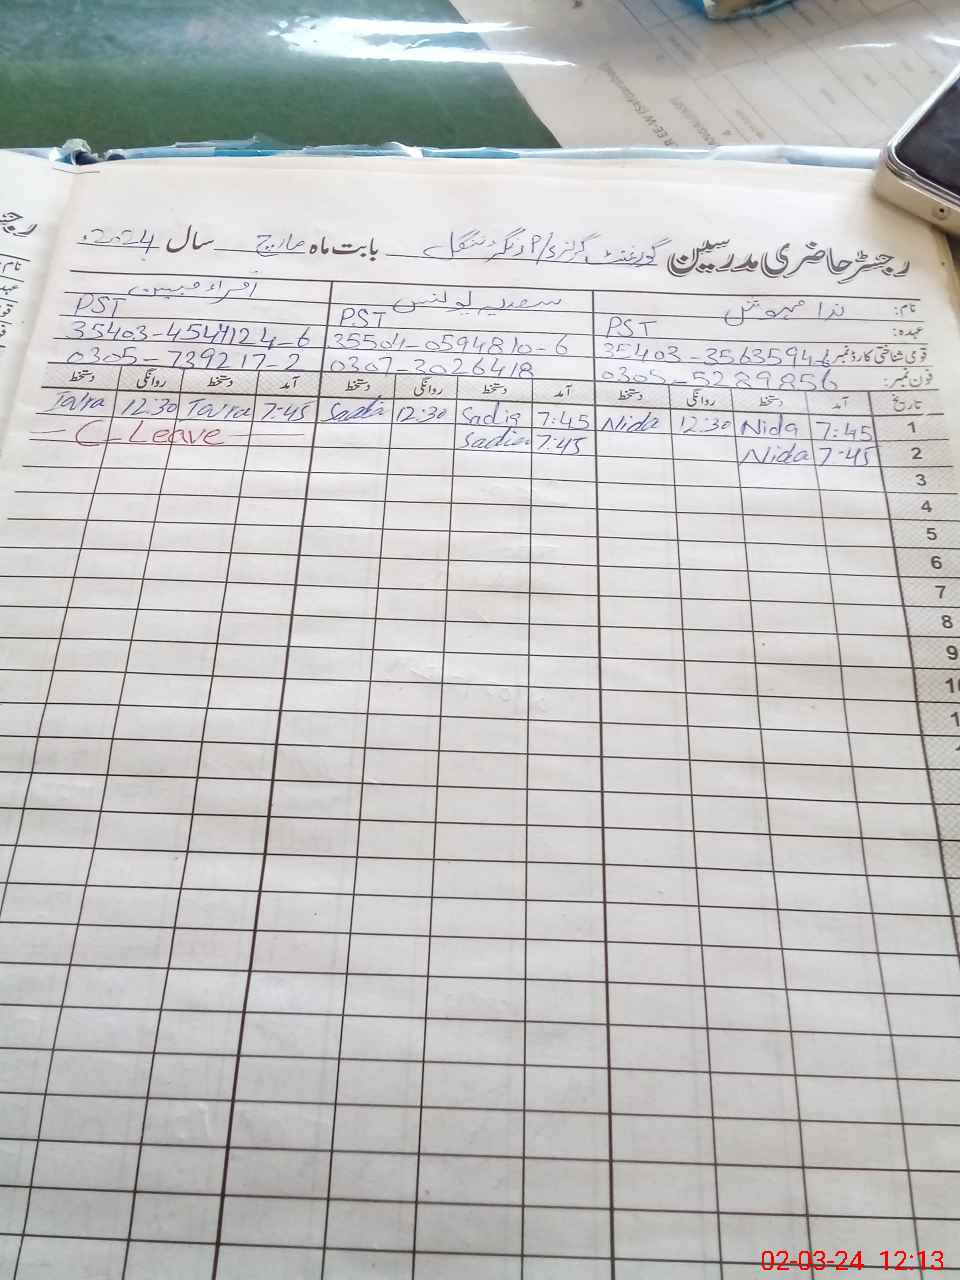 رجسٹر حاضری مدرسین گورنمنٹ گرلز بابت ماہ مارچ سال 2024ء
نام: ندا مہوش سعدیہ یونس اقراء مبین
عہدہ: PST PST PST
قومی شناختی کارڈ نمبر 35403-3563594-6 35504-0594810-6
فون نمبر: 0305-5289856 0307-3026418 0305-739217-2
تاریخ آمد دستخط روانگی دستخط آمد دستخط روانگی دستخط آمد دستخط روانگی دستخط
1 7:45 Nida 12:30 Nida 7:45 Sadia 12:30 Sadia 7-45 12:30
2 7-45 Nida 7:45 Sadia C-Leave
3
4
5
6
7
8
9
02-03-24 12:13